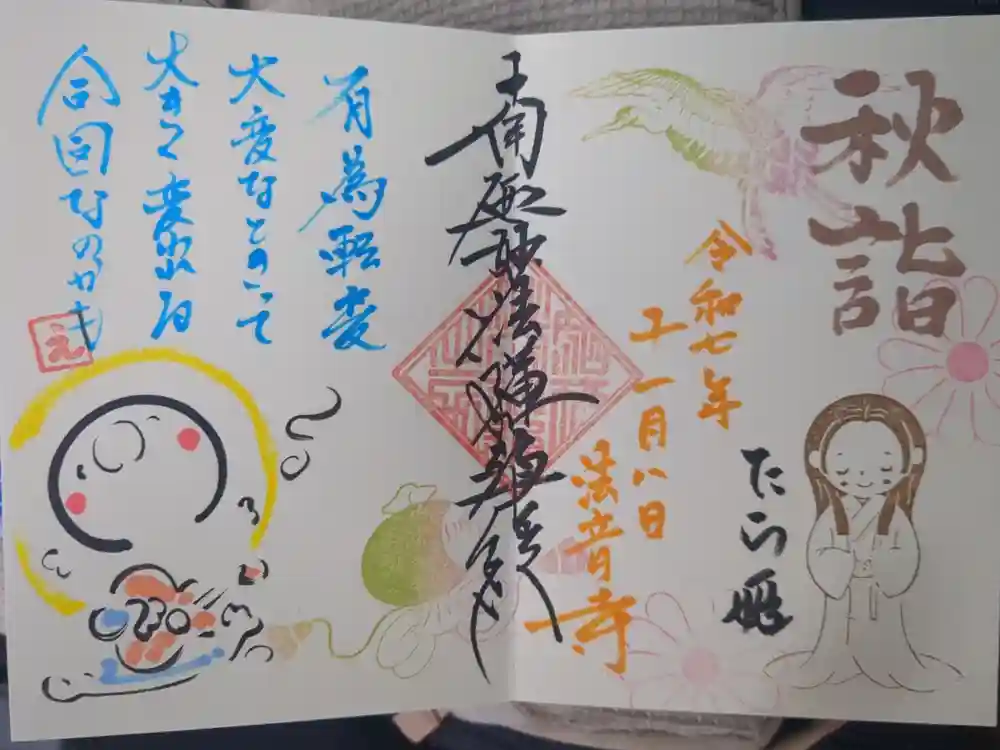 秋詣
令和七年
十一月八日
法音寺
たら姫
南無妙法蓮華経
有為転変
大変なときって
大きく変われる
合図なのかも
え